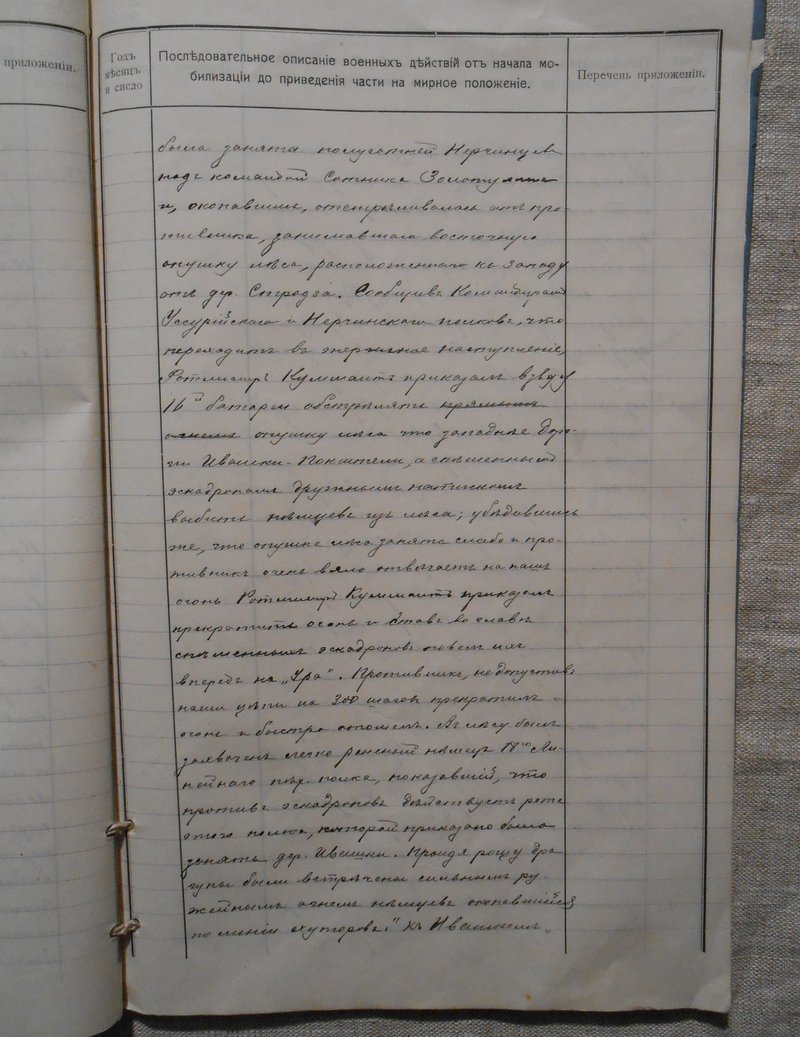 приложенiи.
Годъ
мѣсяцъ
и сисло
Послѣдовательное описанiе военныхъ дѣйствiй отъ начала мо-
билизацiи до приведенiя части на мирное положенiе.
Перечень приложенiи.
была занята полусотней Нерчинцевъ
подъ командой Сотника
и, окопавшись, отстрѣливалась отъ про-
тивника, занимавшаго восточную
опушку лѣса, расположеннаго къ западу
отъ дер. Стредза. Сообщивъ Командирамъ
Уссурiйскаго и Нерчинскаго полковъ, что
переходитъ въ энергичное наступленiе,
Ротмистръ Куммантъ приказалъ взводу
16й батареи обстрѣлять прямымъ
огнемъ опушку лѣса что западнѣе доро-
ги Ивашки - а спѣшеннымъ
эскадронамъ дружнымъ натискомъ
выбить нѣмцевъ изъ лѣса; убѣдившись
же, что опушка лѣса занята слабо и про-
тивникъ очень вяло отвѣчаетъ на нашъ
огонь Ротмистръ Куммантъ приказалъ
прекратить огонь и ставъ во главѣ
спѣшенныхъ эскадроновъ повелъ ихъ
впередъ на „Ура". Противникъ, не допустивъ
наши цѣпи на 300 шаговъ прекратилъ
огонь и быстро отошелъ. Въ лѣсу былъ
захваченъ легко раненый нѣмецъ 18го Ли-
нейнаго пѣх. полка, показавшiй, что
противъ эскадроновъ дѣйствуетъ рота
этого полка, которой приказано было
занять дер. Ивашки. Пройдя рощу дра-
гуны были встрѣчены сильнымъ ру-
жейнымъ огнемъ нѣмцевъ окопавшiйся
по линiи хуторовъ." къ Ивашкамъ„